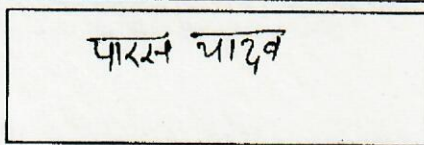 पारस यादव